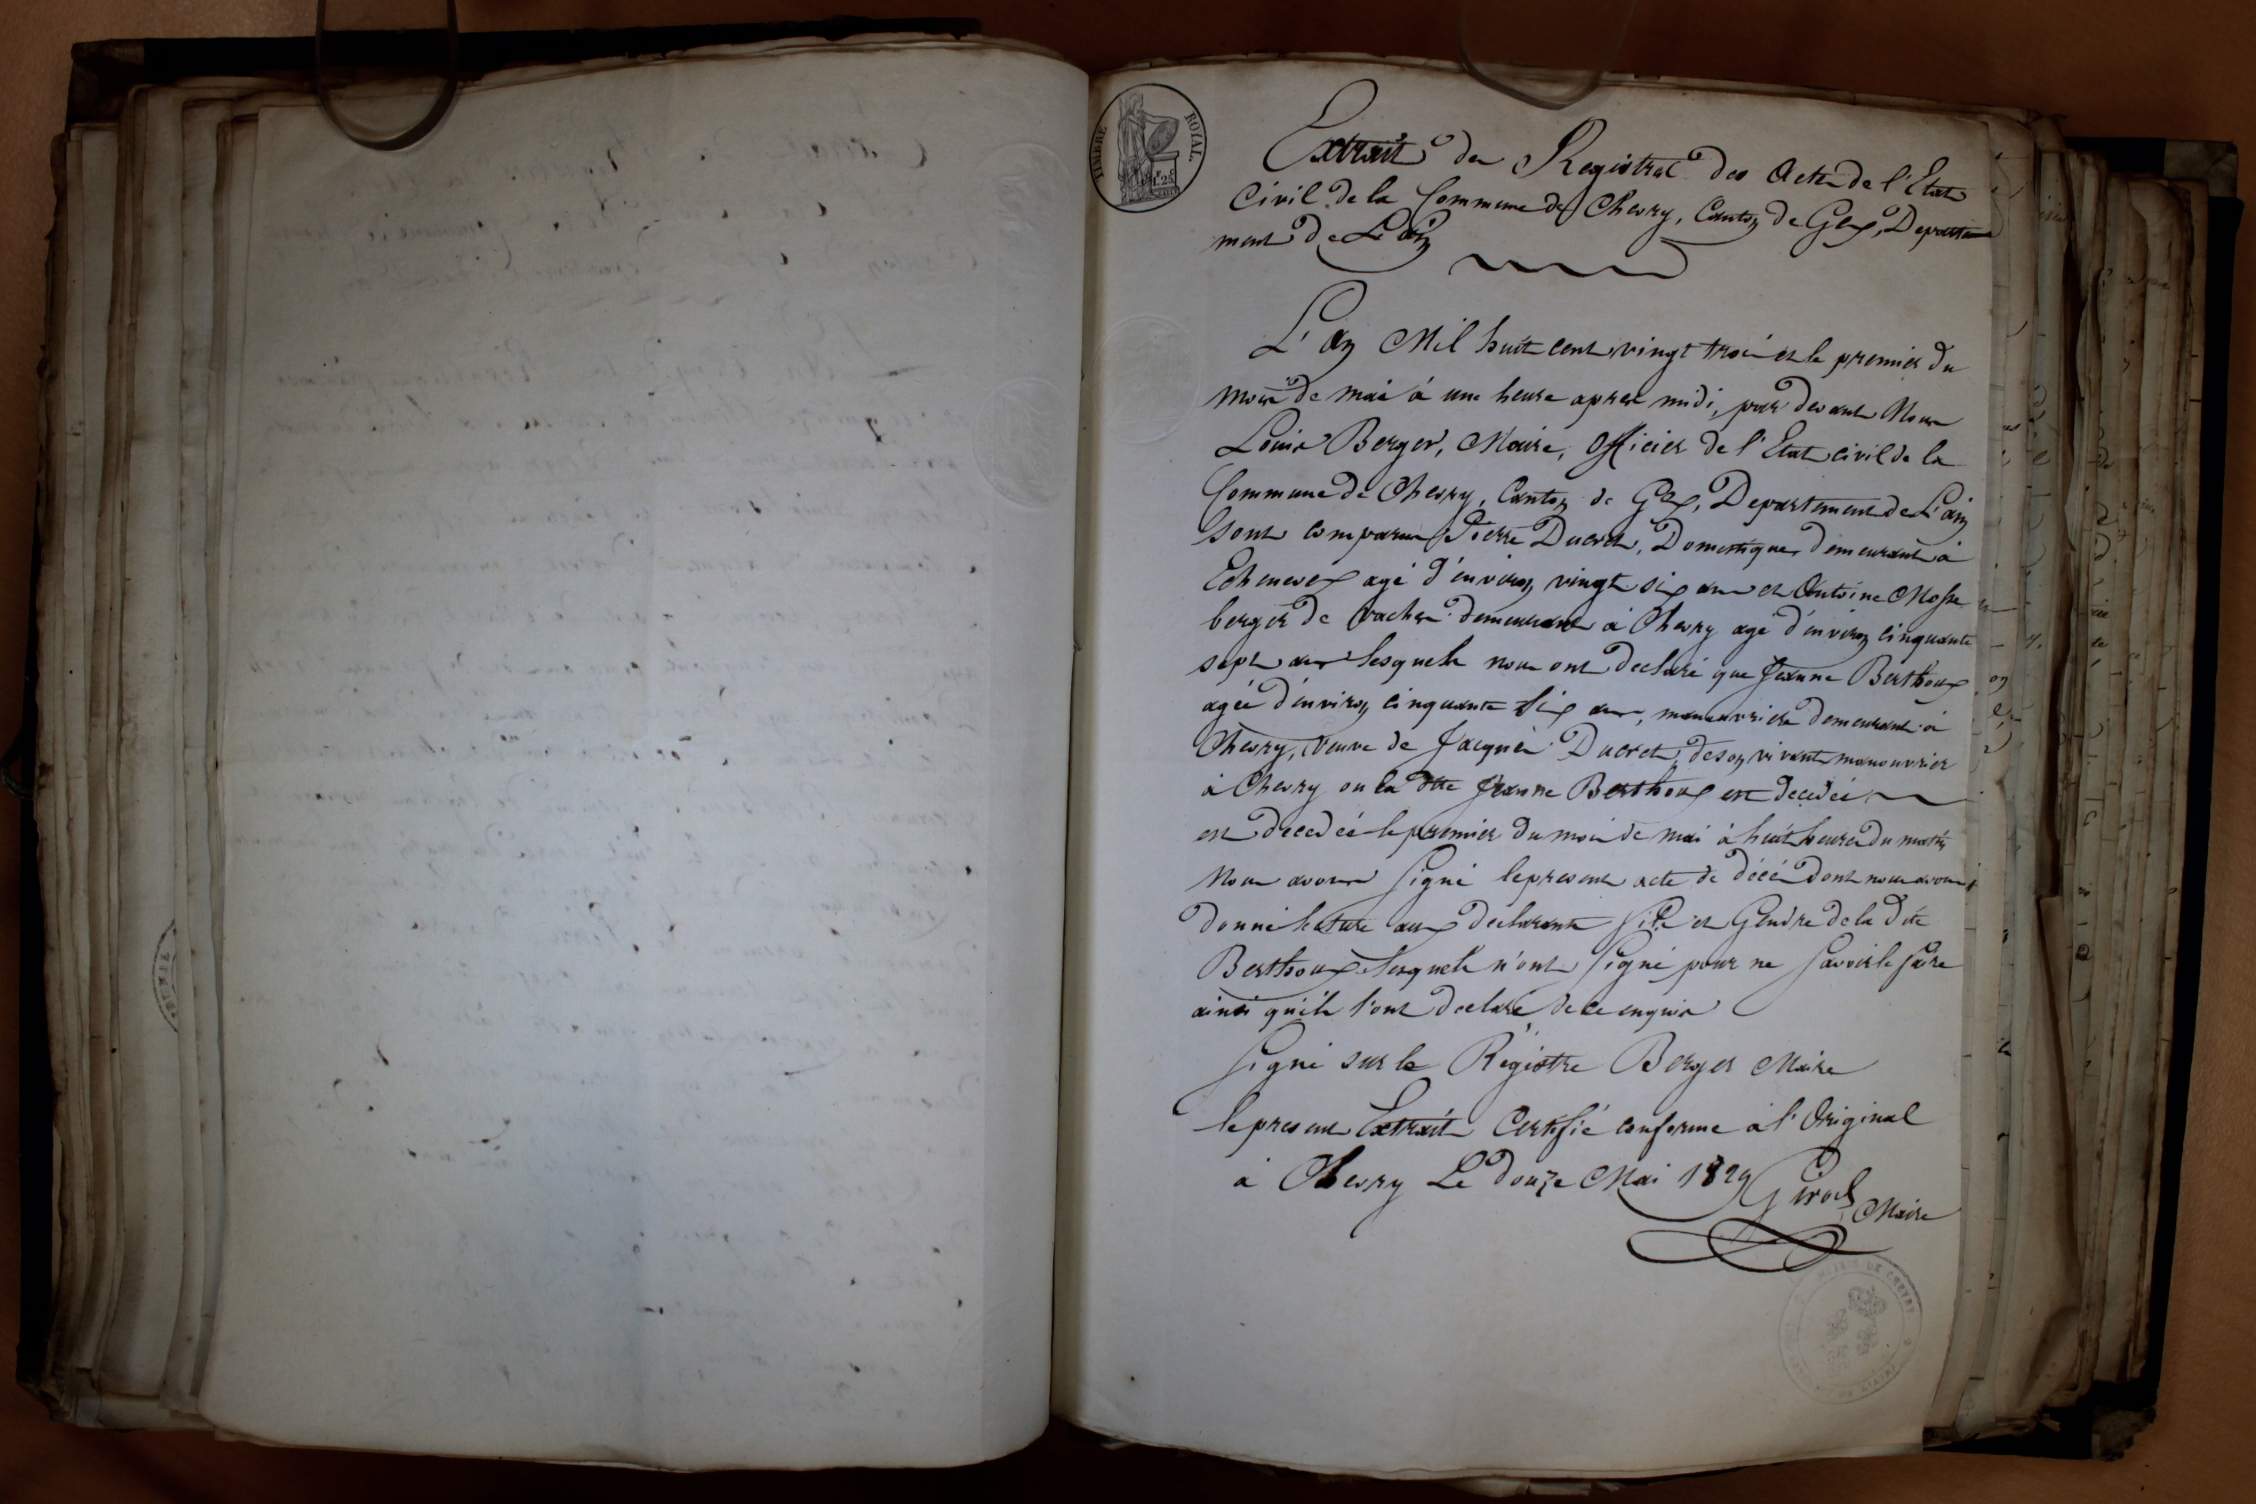 TIMBRE ROYAL
1.25
Extrait des Registres des Actes de l'Etat
Civil de la Commune de Chevry, Canton de Gex, Departe
ment de L'ain
L'an Mil huit cent vingt trois et le premier du
mois de mai à une heure apres midi, par devant Nous
Louis Berger, Maire, officier de l'Etat civil de la
Commune de Chevry, Canton de Gex, Departement de L'ain
sont comparus Pierre Ducret, Domestique demeurant à
Echenevex agé d'environ vingt six ans et Antoine Mosse
berger de vaches demeurant à Chevry agé d'environ cinquante
sept ans lesquels nous ont declaré que Jeanne Berthoux
agée d'environ cinquante six ans, manouvriere demeurant à
Chevry, Veuve de Jacques Ducret, de son vivant manouvrier
à Chevry ou la dte Jeanne Berthoux est decedée
est decedée le premier du mois de mai à huit heures du matin
Nous avons signé le present acte de décé dont nous avons
donné lecture aux declarants fils et Gendre de la dite
Berthoux lesquels n'ont signé pour ne savoir le faire
ainsi qu'ils l'ont declaré de ce enquis
Signé sur le Régistre Berger Maire
le present Extrait Certifié conforme à l'Original
à Chevry Le douze Mai 1829 Girod
Maire
MAIRIE DE CHEVRY